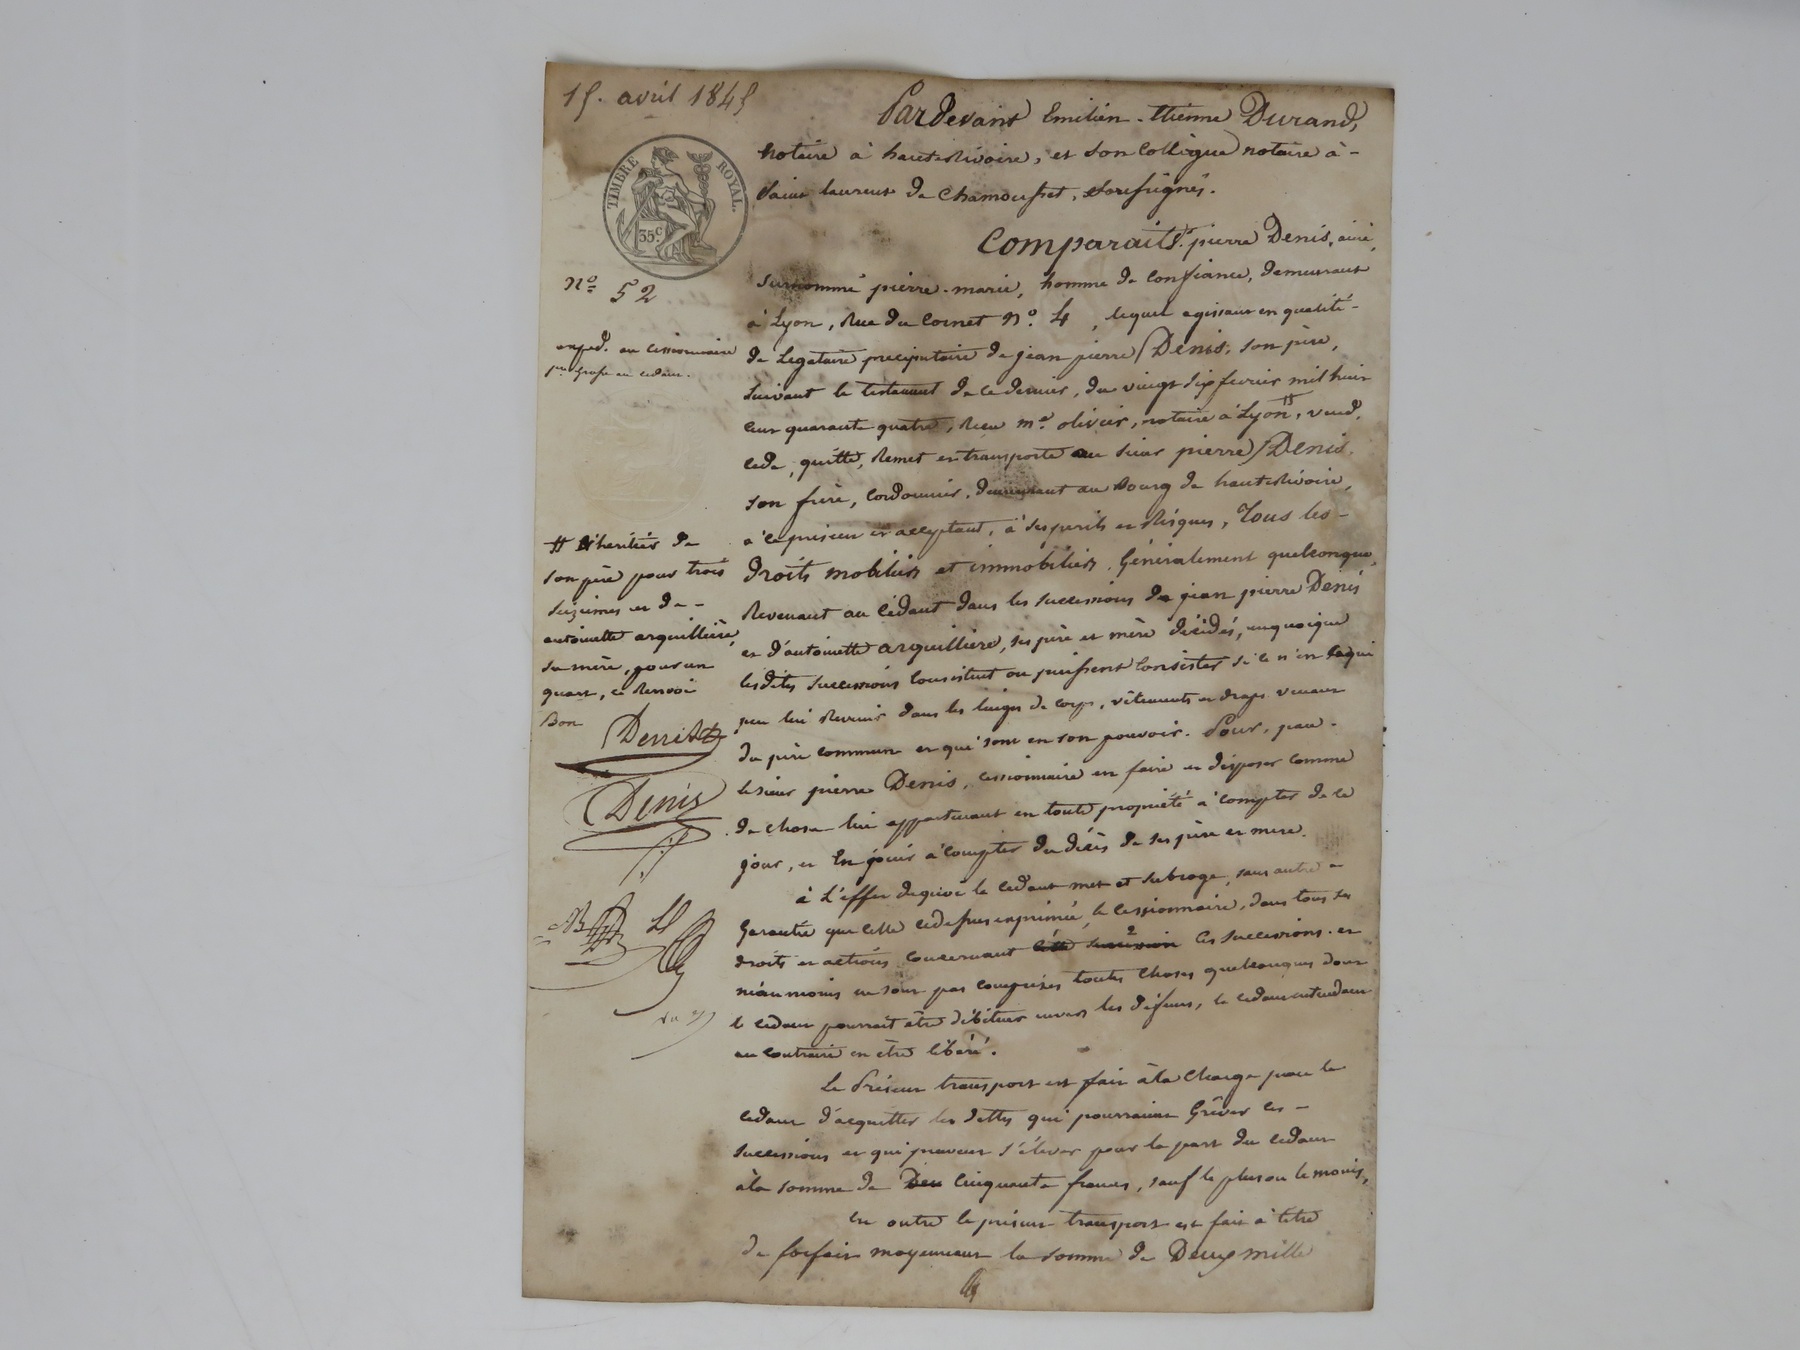 15. avril 1845
Pardevant Emilien-Etienne Durand,
notaire à hauterivoire, et son collègue notaire à -
Saint laurent de Chamousset, soussignés.
TIMBRE ROYAL.
35c.
Comparait Sr. pierre Denis, ainé,
N° 52
surnommé pierre-marie, homme de confiance, demeurant
à Lyon, Rue du Cornet N°. 4, lequel agissant en qualité -
exped. au cessionnaire
pr. Grosse au cedant.
de Legataire preciputaire de jean pierre Denis, son père,
suivant le testament de ce dernier, du vingt six fevrier mil huit
cent quarante quatre, Recu me. olivier, notaire à Lyon, #, vend,
cede, quitte, Remet et transporte au sieur pierre Denis,
son frère, cordonnier, demeurant au Bourg de hauterivoire,
à ce présent et acceptant, à ses perils et Risques, Tous les -
droits mobiliers et immobiliers, Généralement quelconque,
Revenant au cédant dans les successions de jean pierre Denis
et d'antoinette arquilliere, ses père et mère décédés, en quoique
lesdites successions consistent ou puissent consister si ce n'en ce qui
peu lui Revenir dans les linges de corps, vêtements et draps venant
du père commun et qui sont en son pouvoir. Pour, par -
le sieur pierre Denis, cessionnaire en faire et disposer comme
de chose lui appartenant en toute propriété à compter de ce
jour, et En jouir à compter du décès de ses père et mere.
# héritier de
son père pour trois
seizièmes et de -
antoinette arquillière,
sa mère, pour un
quart, ce Renvoi
Bon
Denis
Denis
à L'effet de quoi le cedant met et subroge, sans autre -
Garantie que celle cidessus exprimée, le cessionnaire, dans tous ses
droits et actions concernant cette succession ces successions. et
néanmoins ne sont pas comprises toutes choses quelconques dont
le cedant pourrait être débiteur envers les défunts, le cedant entendant
au contraire en être libéré.
Le Présent transport est fait à la charge par le
cedant d'acquitter les dettes qui pourraient Grêver ces -
successions et qui peuvent s'élever pour la part du cedant
à la somme de cinquante francs, sauf le plus ou le moins,
en outre le présent transport est fait à titre
de forfait moyennant la somme de Deux mille